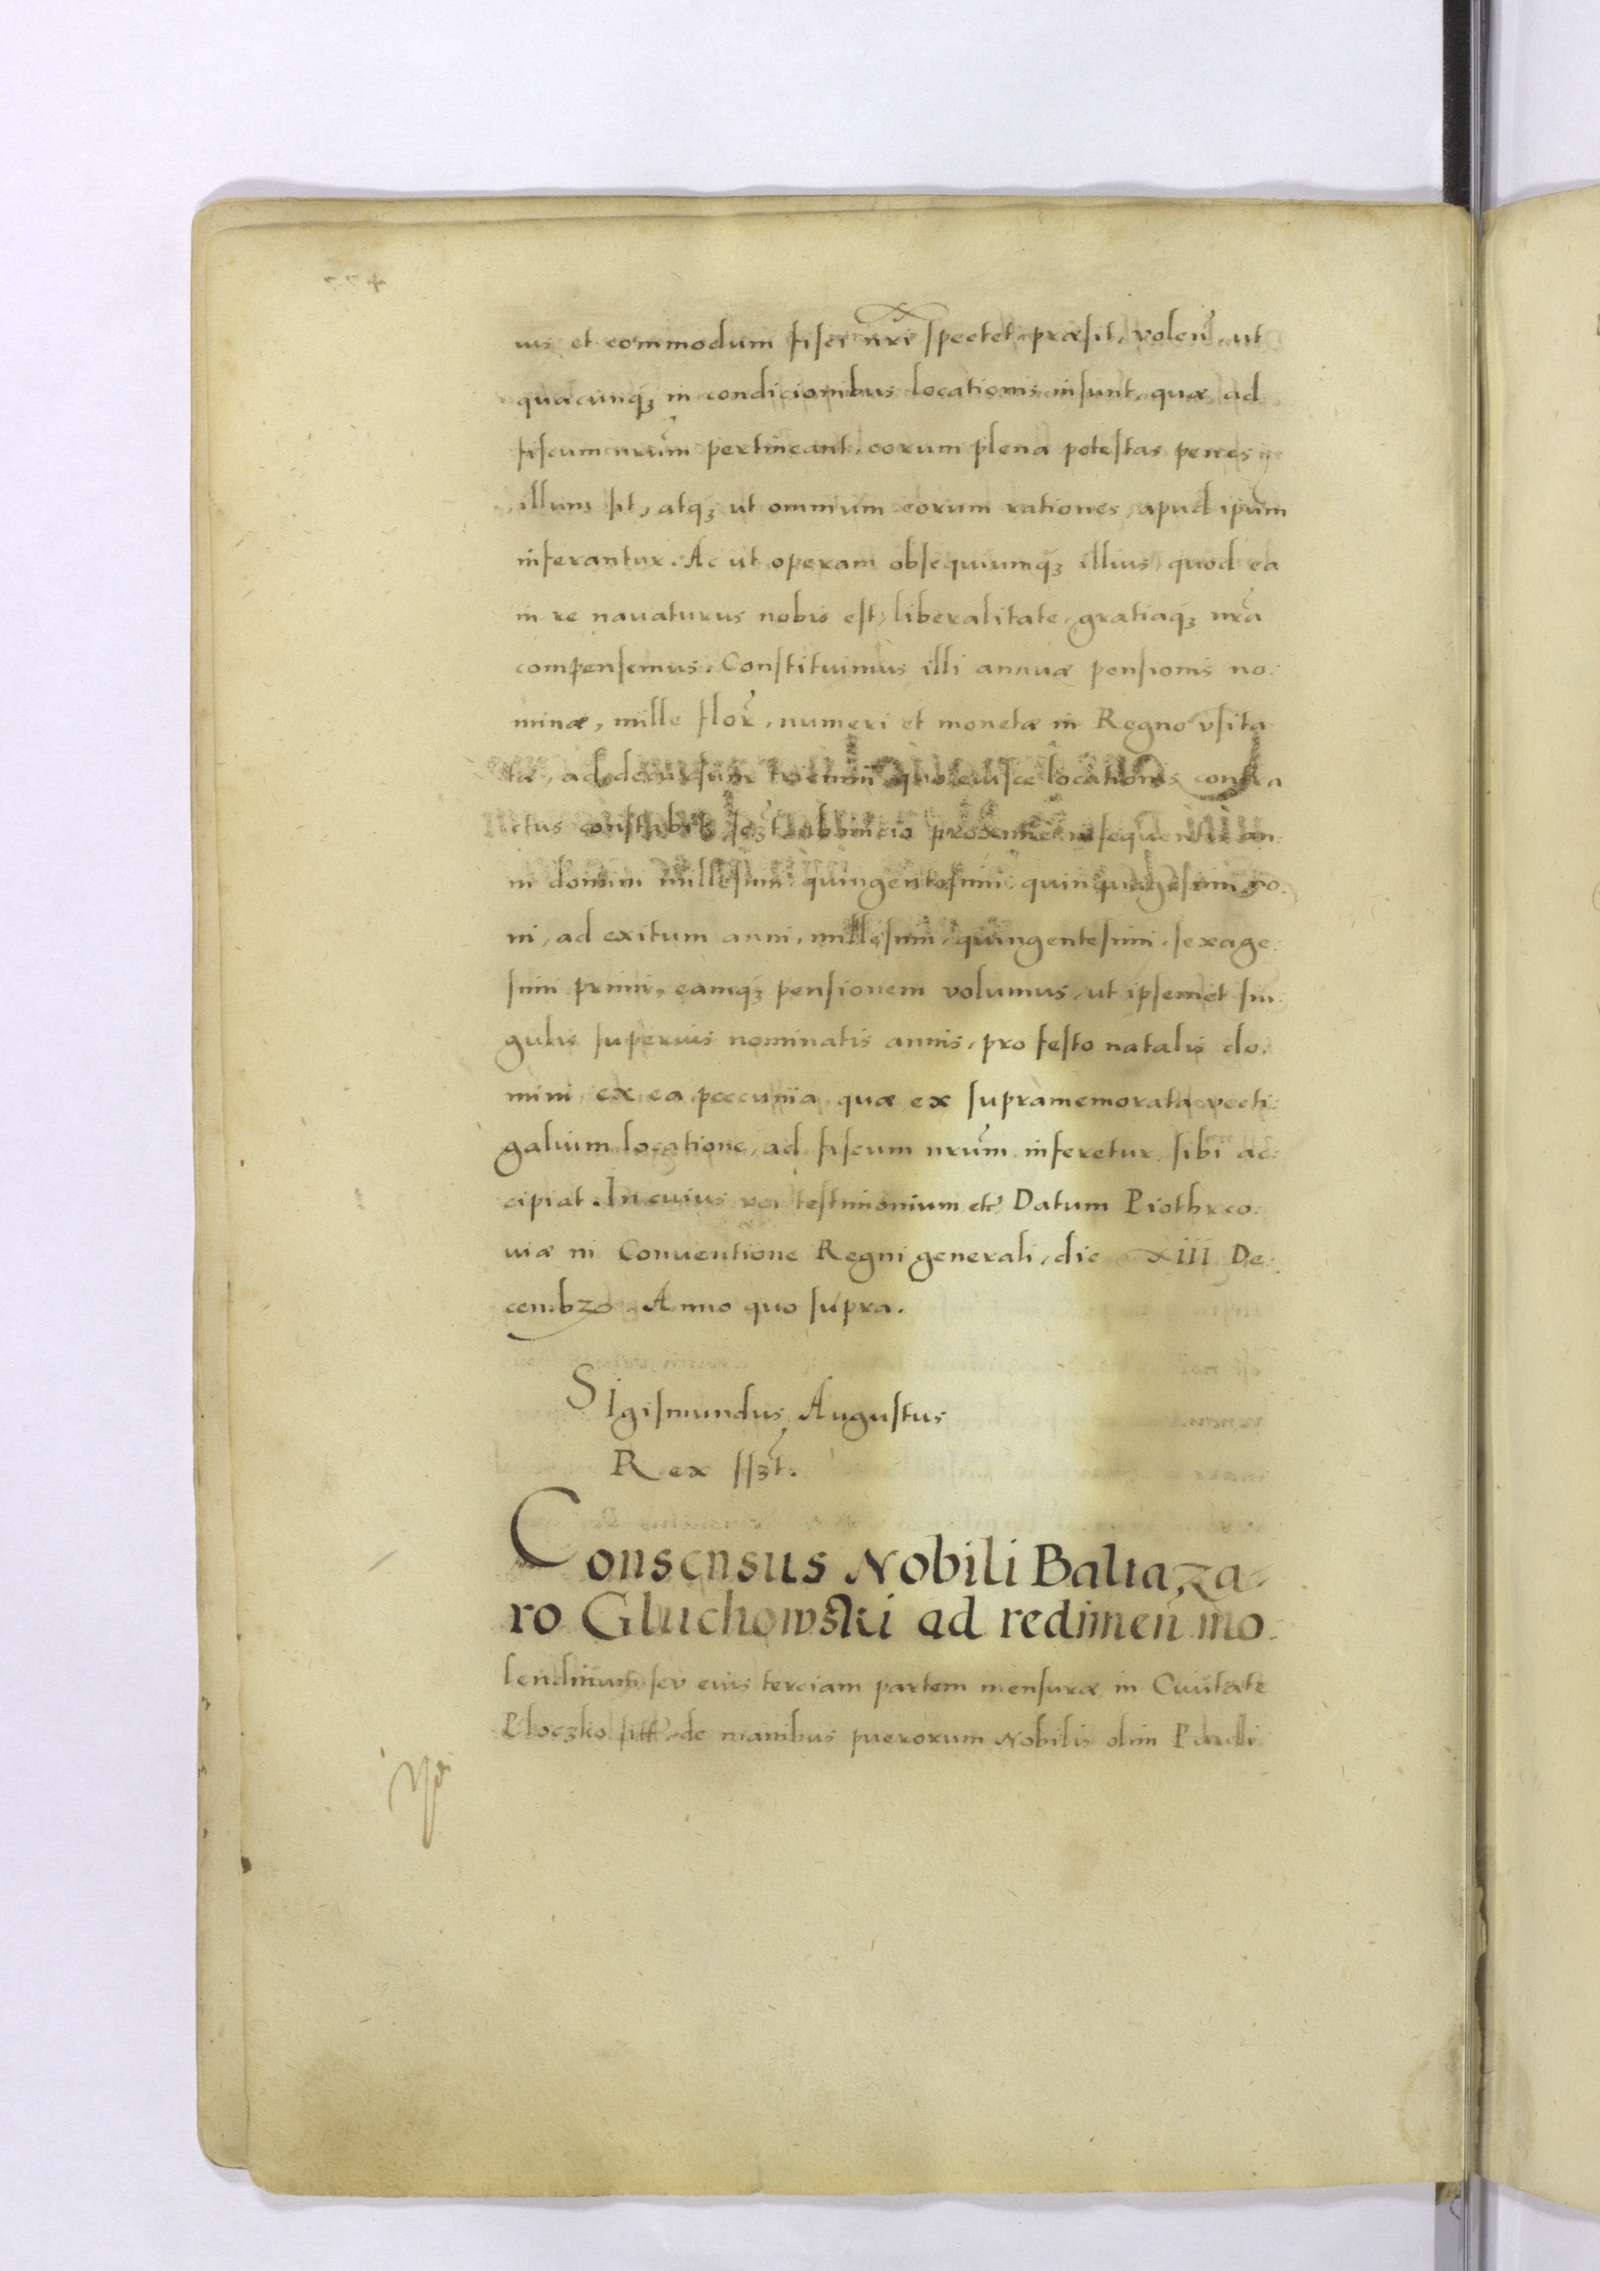 ius et commodum fisci nr̃i spectet, præsit, voleñ, ut
quæcunqȝ in condicionibus locationis insunt, quæ ad
fiscum nr̃um pertineant, eorum plena potestas penes
illum sit, atqȝ ut omnium eorum rationes, apud ipũm
inferantur. Ac ut operam obsequiumqȝ illius, quod ea
in re nauaturus nobis est, liberalitate, gratiaqȝ nr̃a
compensemus. Constituimus illi annuæ pensionis no:
minæ, mille flor̃, numeri et monetæ in Regno vsita
tæ, ad decursum locationis contra
ctus an:
ni domini millesimi quingentesimi quinquagesimi no:
ni, ad exitum anni, millesimi, quingentesimi, sexage:
simi primi, eamqȝ pensionem volumus, ut ipsemet sin:
gulis superius nominatis annis, pro festo natalis do:
mini, ex ea peccunia, quæ ex supramemorata vecti:
galium locatione, ad fiscum nr̃um inferetur, sibi ac:
cipiat. In cuius rei testimonium etc̃ Datum Piothrco:
uiæ in Conuentione Regni generali, die XIII De:
cembr. Anno quo supra.
Sigismundus Augustus
Rex ssȝt.
Consensus Nobili Baltaza-
ro Gluchowski ad redimeñ mo:
lendinum seu eius terciam partem mensuræ in Ciuitate
Ploczko de manibus puerorum Nobilis olim